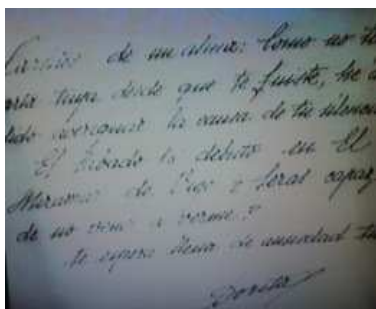 de mi alma: Como no
tuya desde que te fuiste, he
averiguar la causa de tu silencio
El Sábado la debuto en El
Miramar de Vigo ¿Serás capaz
de no venir a verme?
te espera llena de ansiedad tu
Dorita